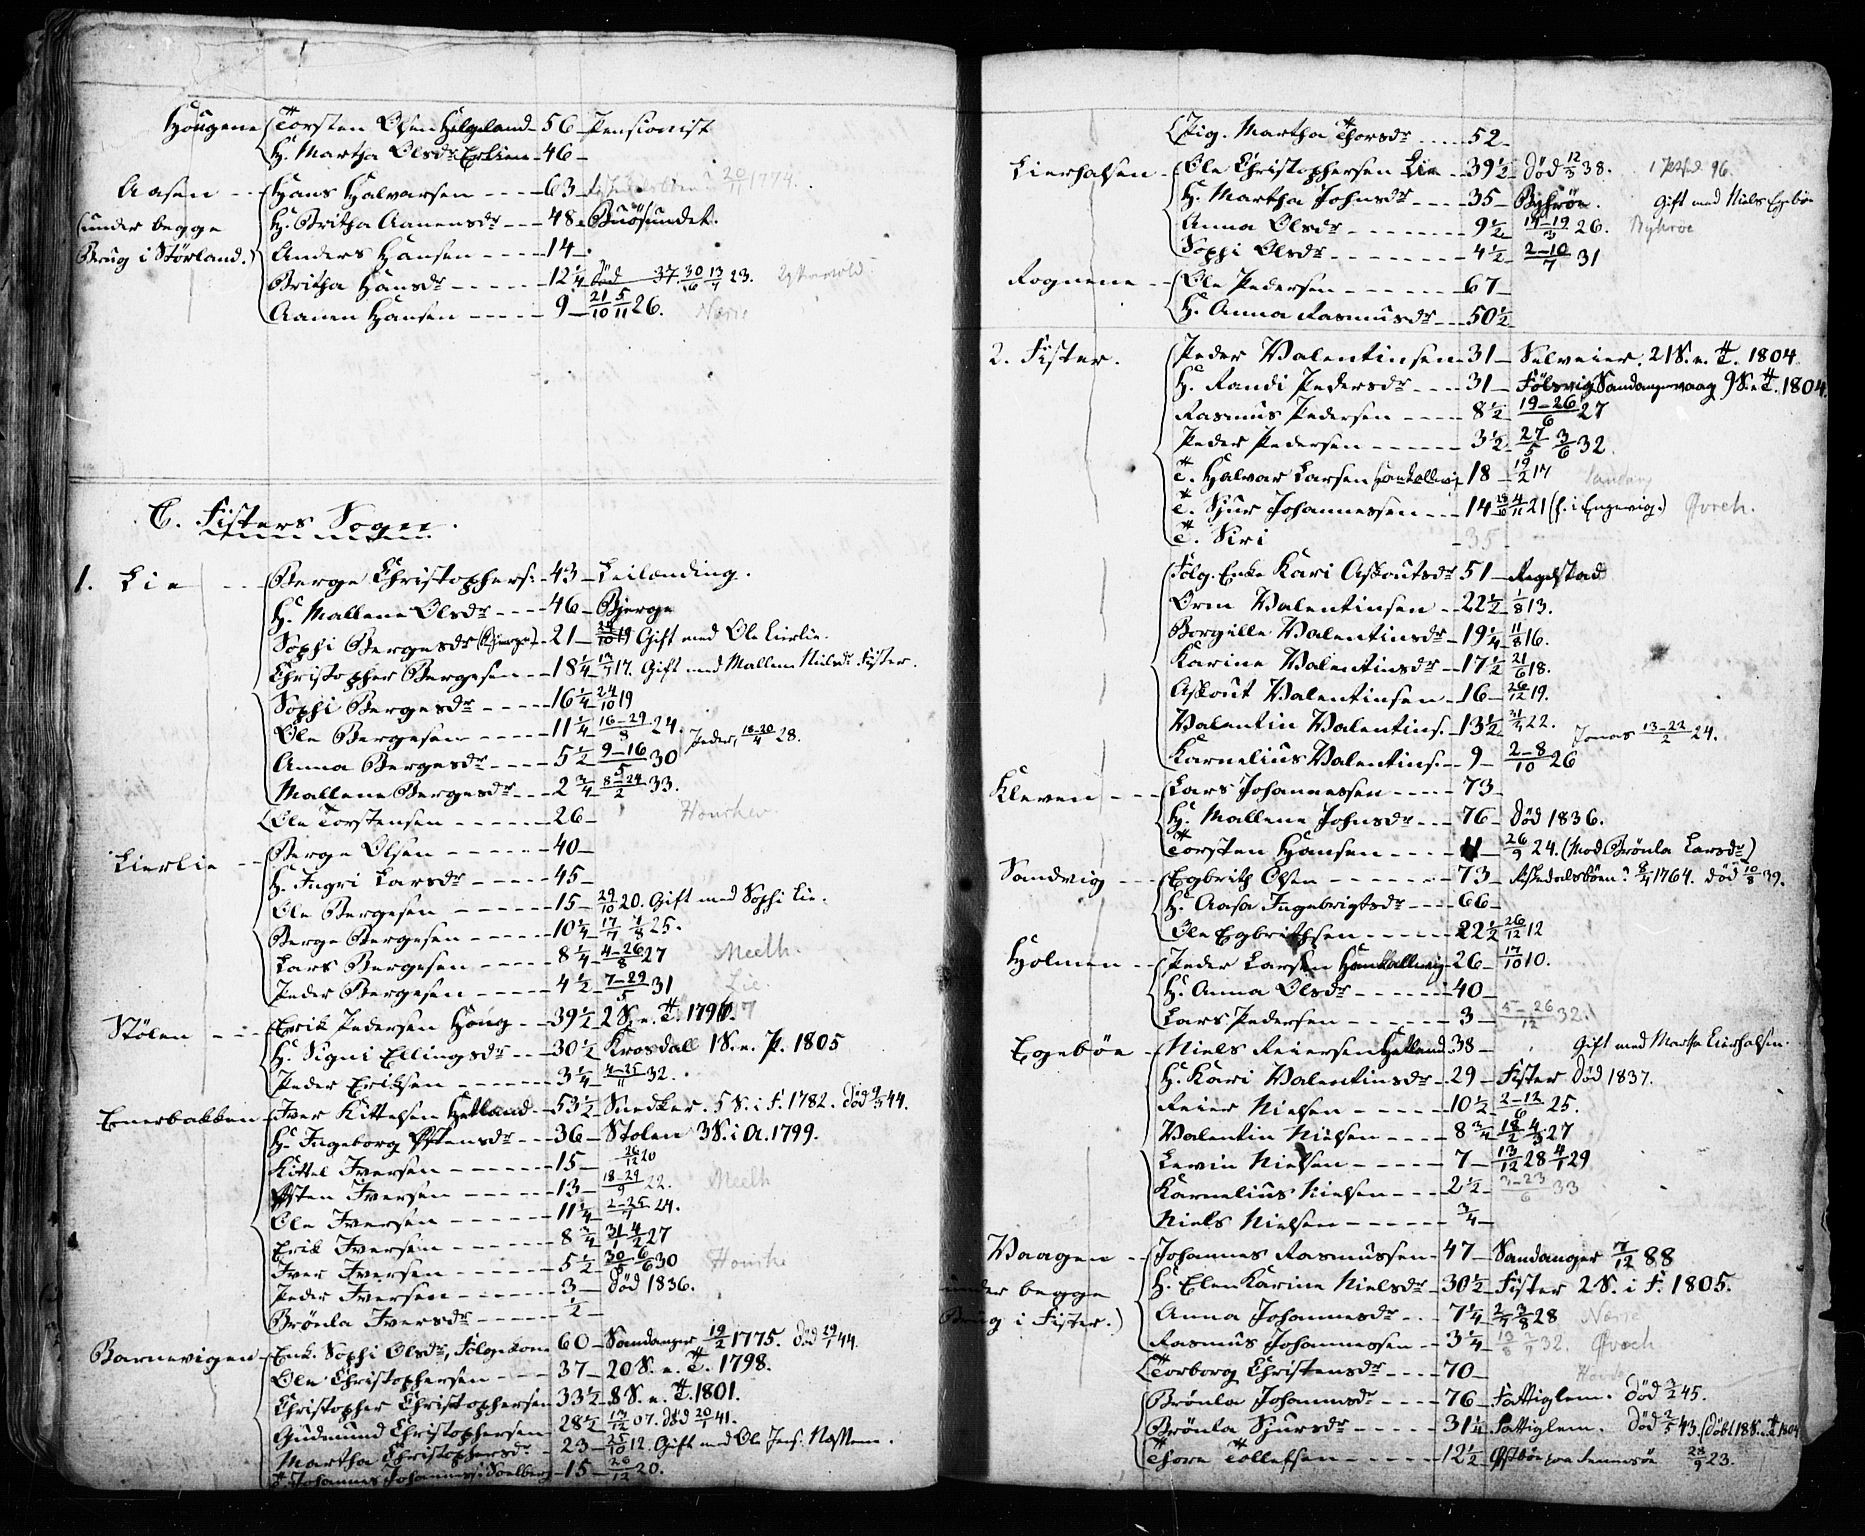 Hougene Torsten Olsen Helgeland 56 Pensionist
H. Martha Olsdr. Erlien 46
Aasen Hans Halvarsen 63 20/11 1774.
(under begge H. Britha Aanensdr 48 Buøsundet.
Brug i Størland.) Anders Hansen 14
Britha Hansdr 12 1/4 død 37. 30/6 13/7 23.
Aanen Hansen 9 21/10 5/11 26. Nærie
C. Fisters Sogn.
1. Lie Berge Christophers. 43 Leilænding.
H. Mallene Olsdr 46 Bjerge
Sophi Bergesdr (Bjerge) 21 24/10 19 Gift med Ole Lierlie.
Christopher Bergesen 18 1/4 13/7 17. Gift med Mallene Nielsdr Fister.
Sophi Bergesdr 16 1/4 24/10 19
Ole Bergesen 11 1/4 16-29/8 24. Peder, 18-20/4 28.
Anna Bergesdr 5 1/2 9-16/5 30
Mallene Bergesdr 2 3/4 8-24/2 33.
Ole Torstensen 26
Lierlie Berge Olsen 40
H. Ingri Larsdr 45
Ole Bergesen 15 29/10 20. Gift med Sophi Lie.
Berge Bergesen 10 1/4 17/7 7/8 25.
Lars Bergesen 8 1/4 4-26/8 27 Meelh.
Peder Bergesen 4 1/2 7-29/5 31 Lie
Stølen Erik Pedersen Houg 39 1/2 2 S. e. T. 1796.
H. Signi Ellingsdr 30 1/2 Krosdall 1 S. e. P. 1805
Peder Eriksen 3 1/4 4-25/11 32.
Enerbakken Iver Kittelsen Hetland 53 1/2 Snedker. 5 S. i F. 1782. død 9/3 44.
H. Ingeborg Østensdr 36 Stølen 3 S. i A. 1799.
Kittel Iversen 15 26/12 20
Østen Iversen 13 18-29/9 22. Meelh
Ole Iversen 11 1/4 2-25/7 24.
Erik Iversen 8 3/4 31/1 4/2 27
Iver Iversen 5 1/2 30/5 6/6 30
Peder Iversen 3 død 1836.
Brønla Iversdr 1/2
Barnevigen Enk. Sophi Olsdr, Følgekone 60 Sandanger 19/2 1775. død 29/7 44.
Ole Christophersen 37 20 S. e. T. 1798.
Christopher Christophersen 33 1/2 8 S. e. T. 1801.
Gudmund Christophersen 28 1/2 13/12 07. død 20/1 41.
Martha Christophersdr 23 25/10 12. Gift med Ole Jens. Næssem.
T. Johannes Johanness. Soelberg 15 26/12 20.
Pig. Martha Thorsdr 52
Lierhalsen Ole Christophersen Lie 39 1/2 død 12/5 38.
H. Martha Johnsdr 35 Byhrøe. Gift med Niels Egebøe
Anna Olsdr 9 1/2 14-19/3 26. Byhrøe
Sophi Olsdr 4 1/2 2-10/7 31
Rognene Ole Pedersen 67
H. Anna Rasmusdr 50 1/2
2. Fister. Peder Valentinsen 31 Selveier. 21 S. e. T. 1804.
H. Randi Pedersdr 31 Følsvig Sandangervaag 9 S. e. T. 1804.
Rasmus Pedersen 8 1/2 19-26/6 27
Peder Pedersen 3 1/2 27/5 3/6 32.
T. Halvar Larsen 18 19/2 17
T. Sjur Johannessen 14 4/11 21 (f. i Engevig.)
T. Siri 35
Følg. Enke Kari Askoutsdr 51 Regelstad
Orm Valentinsen 22 1/2 1/8 13.
Borgille Valentinsdr 19 1/4 11/8 16.
Karine Valentinsdr 17 1/2 21/6 18.
Askout Valentinsen 16 26/12 19.
Valentin Valentins. 13 1/2 31/3 22. Jonas 13-22/2 24.
Karnelius Valentins. 9 2-8/10 26
Kleven Lars Johannessen 73
H. Mallene Johnsdr 76 død 1836.
Torsten Hansen 11 26/9 24. (Mod. Brønla Larsdr)
Sandvig Egbrith Olsen 73 Askedalsbøen? 8/4 1764. død 10/8 39.
H. Aasa Ingebrigtsdr 66
Ole Egbrithsen 22 1/2 26/12 12
Holmen Peder Larsen Hankallevig 26 17/10 10.
H. Anna Olsdr 40
Lars Pedersen 3 5-26/12 32.
Egebøe Niels Reiersen Hetland 38 Gift med Martha Lierhalsen.
H. Kari Valentinsdr 29 Fister død 1837.
Reier Nielsen 10 1/2 2-12/6 25.
Valentin Nielsen 8 3/4 18/2 4/3 27
Levin Nielsen 7 13/12 28 4/1 29
Karnelius Nielsen 2 1/2 3-23/6 33
Niels Nielsen 3/4
Vaagen Johannes Rasmussen 47 Sandanger 7/12 88
(under begge H. Elen Karine Nielsdr 30 1/2 Fister 2 S. i F. 1805.
Brug i Fister.) Anna Johannesdr 7 1/4 2/7 3/8 28 Nærie
Rasmus Johannessen 3 1/4 32.
Torborg Christensdr 70
Brønla Johannesdr 76 Fattiglem. død 3/2 45.
Brønla Sjursdr 31 1/4 Fattiglem. død 2/5 43. (døbt 18 S. e. T 1804
Thore Tollefsen 12 1/2 Østbøe paa Sennesøe 28/9 23.